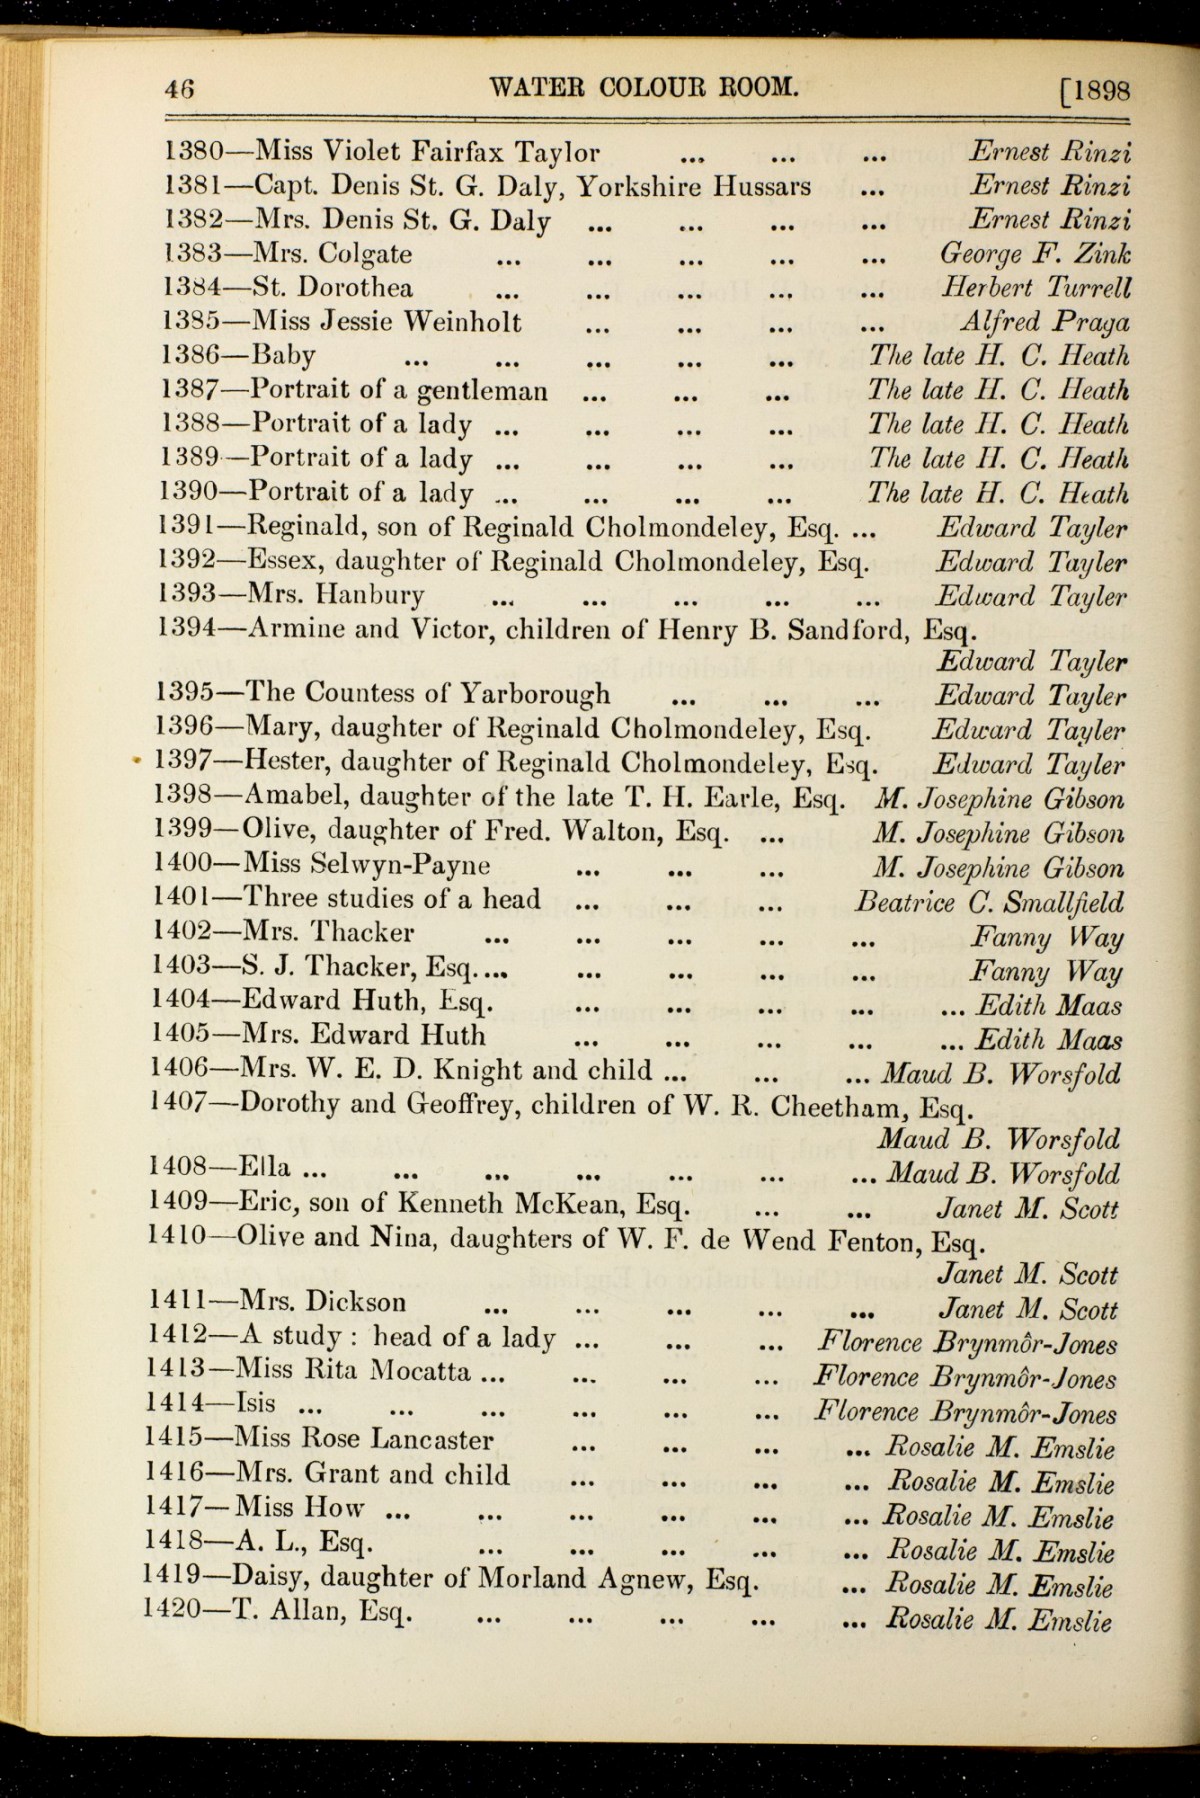 46 WATER COLOUR ROOM. [1898
1380—Miss Violet Fairfax Taylor ... ... ... Ernest Rinzi
1381—Capt. Denis St. G. Daly, Yorkshire Hussars ... Ernest Rinzi
1382—Mrs. Denis St. G. Daly ... ... ... ... Ernest Rinzi
1383—Mrs. Colgate ... ... ... ... ... George F. Zink
1384—St. Dorothea ... ... ... ... ... Herbert Turrell
1385—Miss Jessie Weinholt ... ... ... ... Alfred Praga
1386—Baby ... ... ... ... ... The late H. C. Heath
1387—Portrait of a gentleman ... ... ... The late H. C. Heath
1388—Portrait of a lady ... ... ... ... The late H. C. Heath
1389—Portrait of a lady ... ... ... ... The late H. C. Heath
1390—Portrait of a lady ... ... ... ... The late H. C. Heath
1391—Reginald, son of Reginald Cholmondeley, Esq. ... Edward Tayler
1392—Essex, daughter of Reginald Cholmondeley, Esq. Edward Tayler
1393—Mrs. Hanbury ... ... ... ... ... Edward Tayler
1394—Armine and Victor, children of Henry B. Sandford, Esq.
Edward Tayler
1395—The Countess of Yarborough ... ... ... Edward Tayler
1396—Mary, daughter of Reginald Cholmondeley, Esq. Edward Tayler
1397—Hester, daughter of Reginald Cholmondeley, Esq. Edward Tayler
1398—Amabel, daughter of the late T. H. Earle, Esq. M. Josephine Gibson
1399—Olive, daughter of Fred. Walton, Esq. ... M. Josephine Gibson
1400—Miss Selwyn-Payne ... ... ... M. Josephine Gibson
1401—Three studies of a head ... ... ... Beatrice C. Smallfield
1402—Mrs. Thacker ... ... ... ... ... Fanny Way
1403—S. J. Thacker, Esq.... ... ... ... ... Fanny Way
1404—Edward Huth, Esq. ... ... ... ... ... Edith Maas
1405—Mrs. Edward Huth ... ... ... ... ... Edith Maas
1406—Mrs. W. E. D. Knight and child ... ... ... Maud B. Worsfold
1407—Dorothy and Geoffrey, children of W. R. Cheetham, Esq.
Maud B. Worsfold
1408—Ella ... ... ... ... ... ... ... Maud B. Worsfold
1409—Eric, son of Kenneth McKean, Esq. ... ... Janet M. Scott
1410—Olive and Nina, daughters of W. F. de Wend Fenton, Esq.
Janet M. Scott
1411—Mrs. Dickson ... ... ... ... ... Janet M. Scott
1412—A study : head of a lady ... ... ... Florence Brynmôr-Jones
1413—Miss Rita Mocatta ... ... ... ... Florence Brynmôr-Jones
1414—Isis ... ... ... ... ... ... Florence Brynmôr-Jones
1415—Miss Rose Lancaster ... ... ... ... Rosalie M. Emslie
1416—Mrs. Grant and child ... ... ... ... Rosalie M. Emslie
1417—Miss How ... ... ... ... ... ... Rosalie M. Emslie
1418—A. L., Esq. ... ... ... ... ... Rosalie M. Emslie
1419—Daisy, daughter of Morland Agnew, Esq. ... Rosalie M. Emslie
1420—T. Allan, Esq. ... ... ... ... ... Rosalie M. Emslie